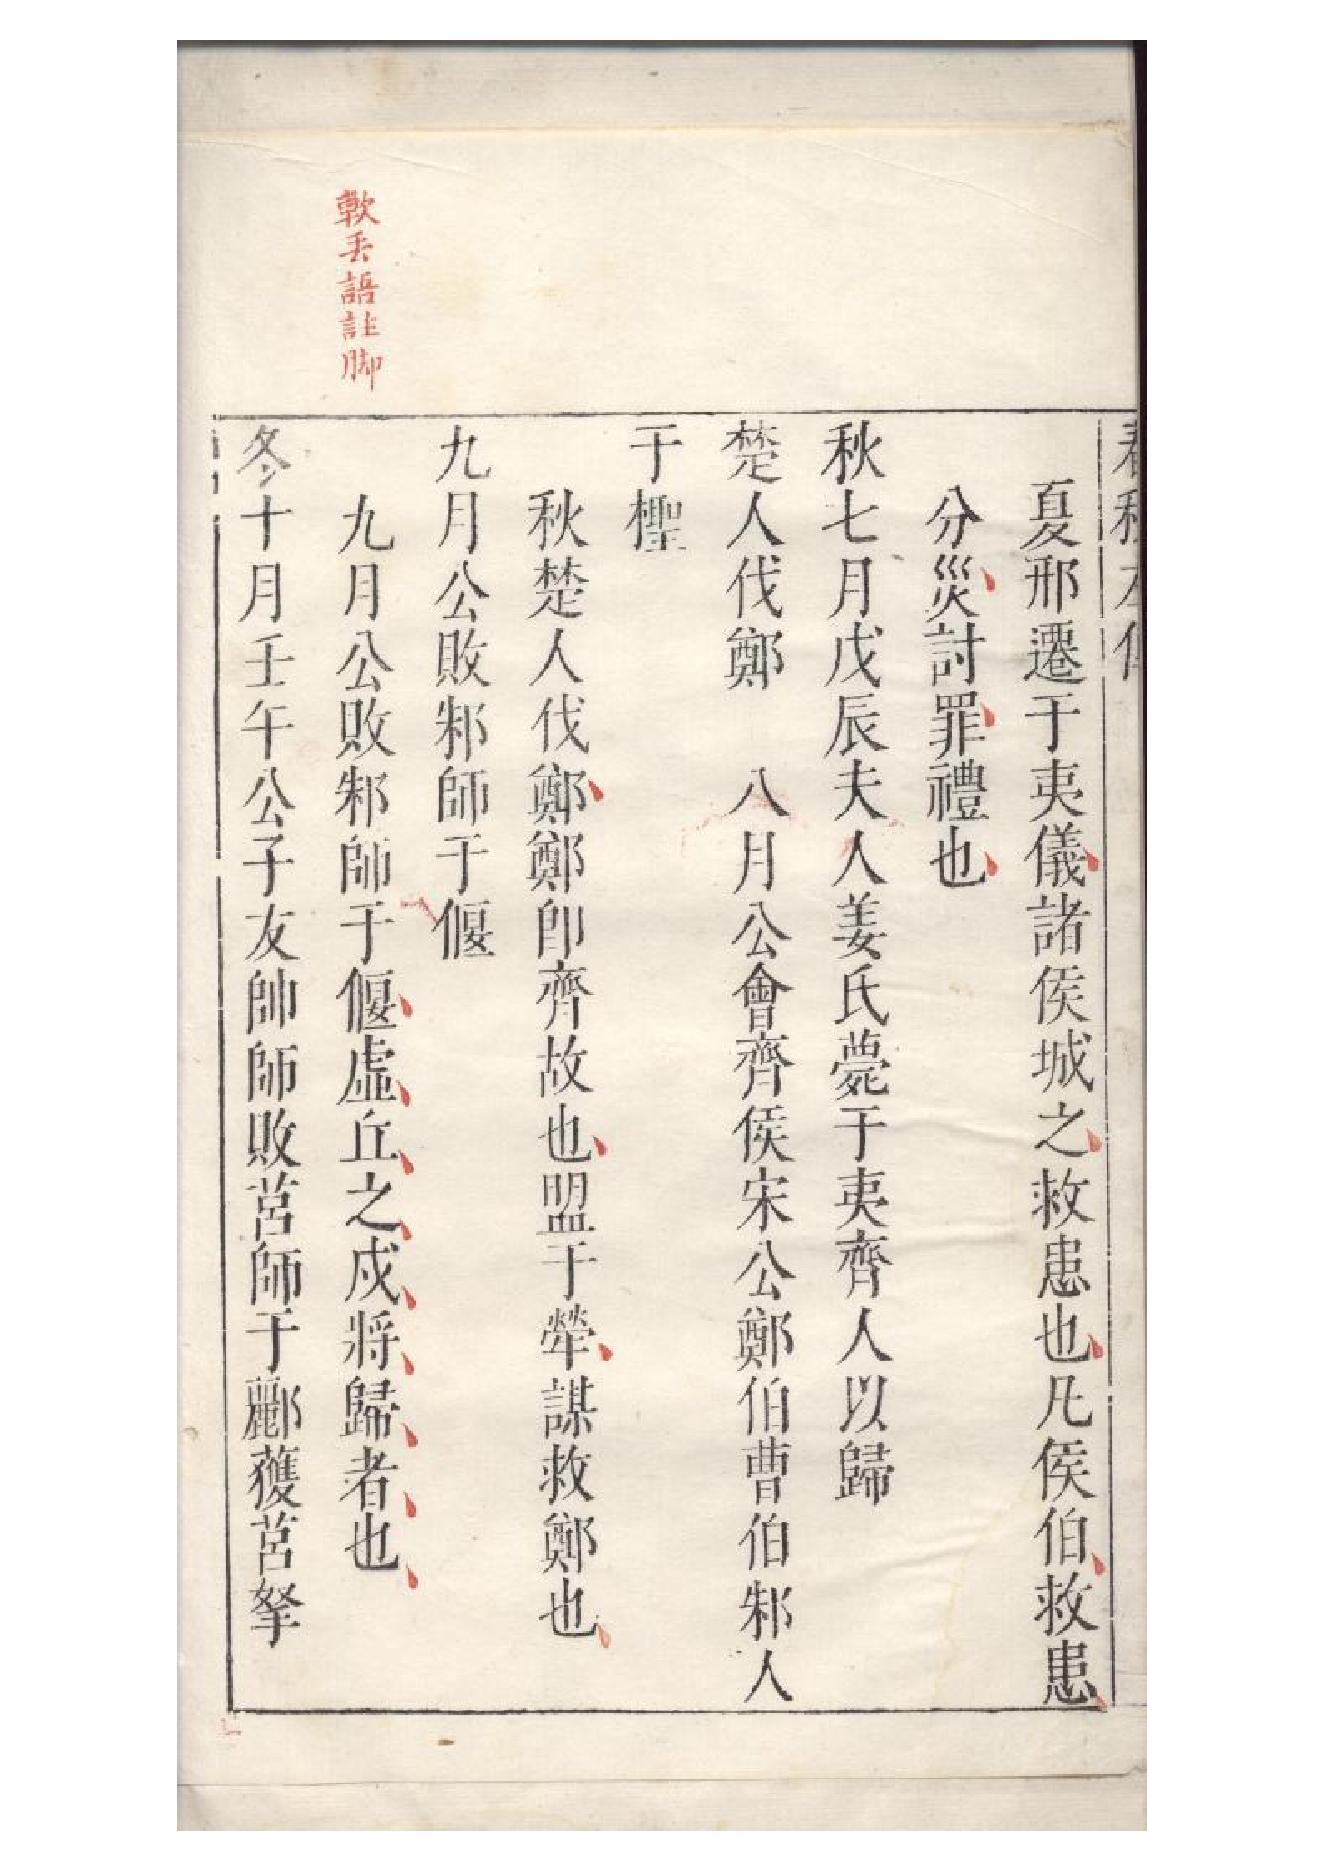 春秋左傳
夏邢遷于夷儀諸侯城之救患也凡侯伯救患
分災討罪禮也
秋七月戊辰夫人姜氏薨于夷齊人以歸
楚人伐鄭　八月公會齊侯宋公鄭伯曹伯邾人
于檉
秋楚人伐鄭鄭卽齊故也盟于犖謀救鄭也
九月公敗邾師于偃
九月公敗邾師于偃虛丘之戍將歸者也
冬十月壬午公子友帥師敗莒師于酈獲莒挐
語註脚